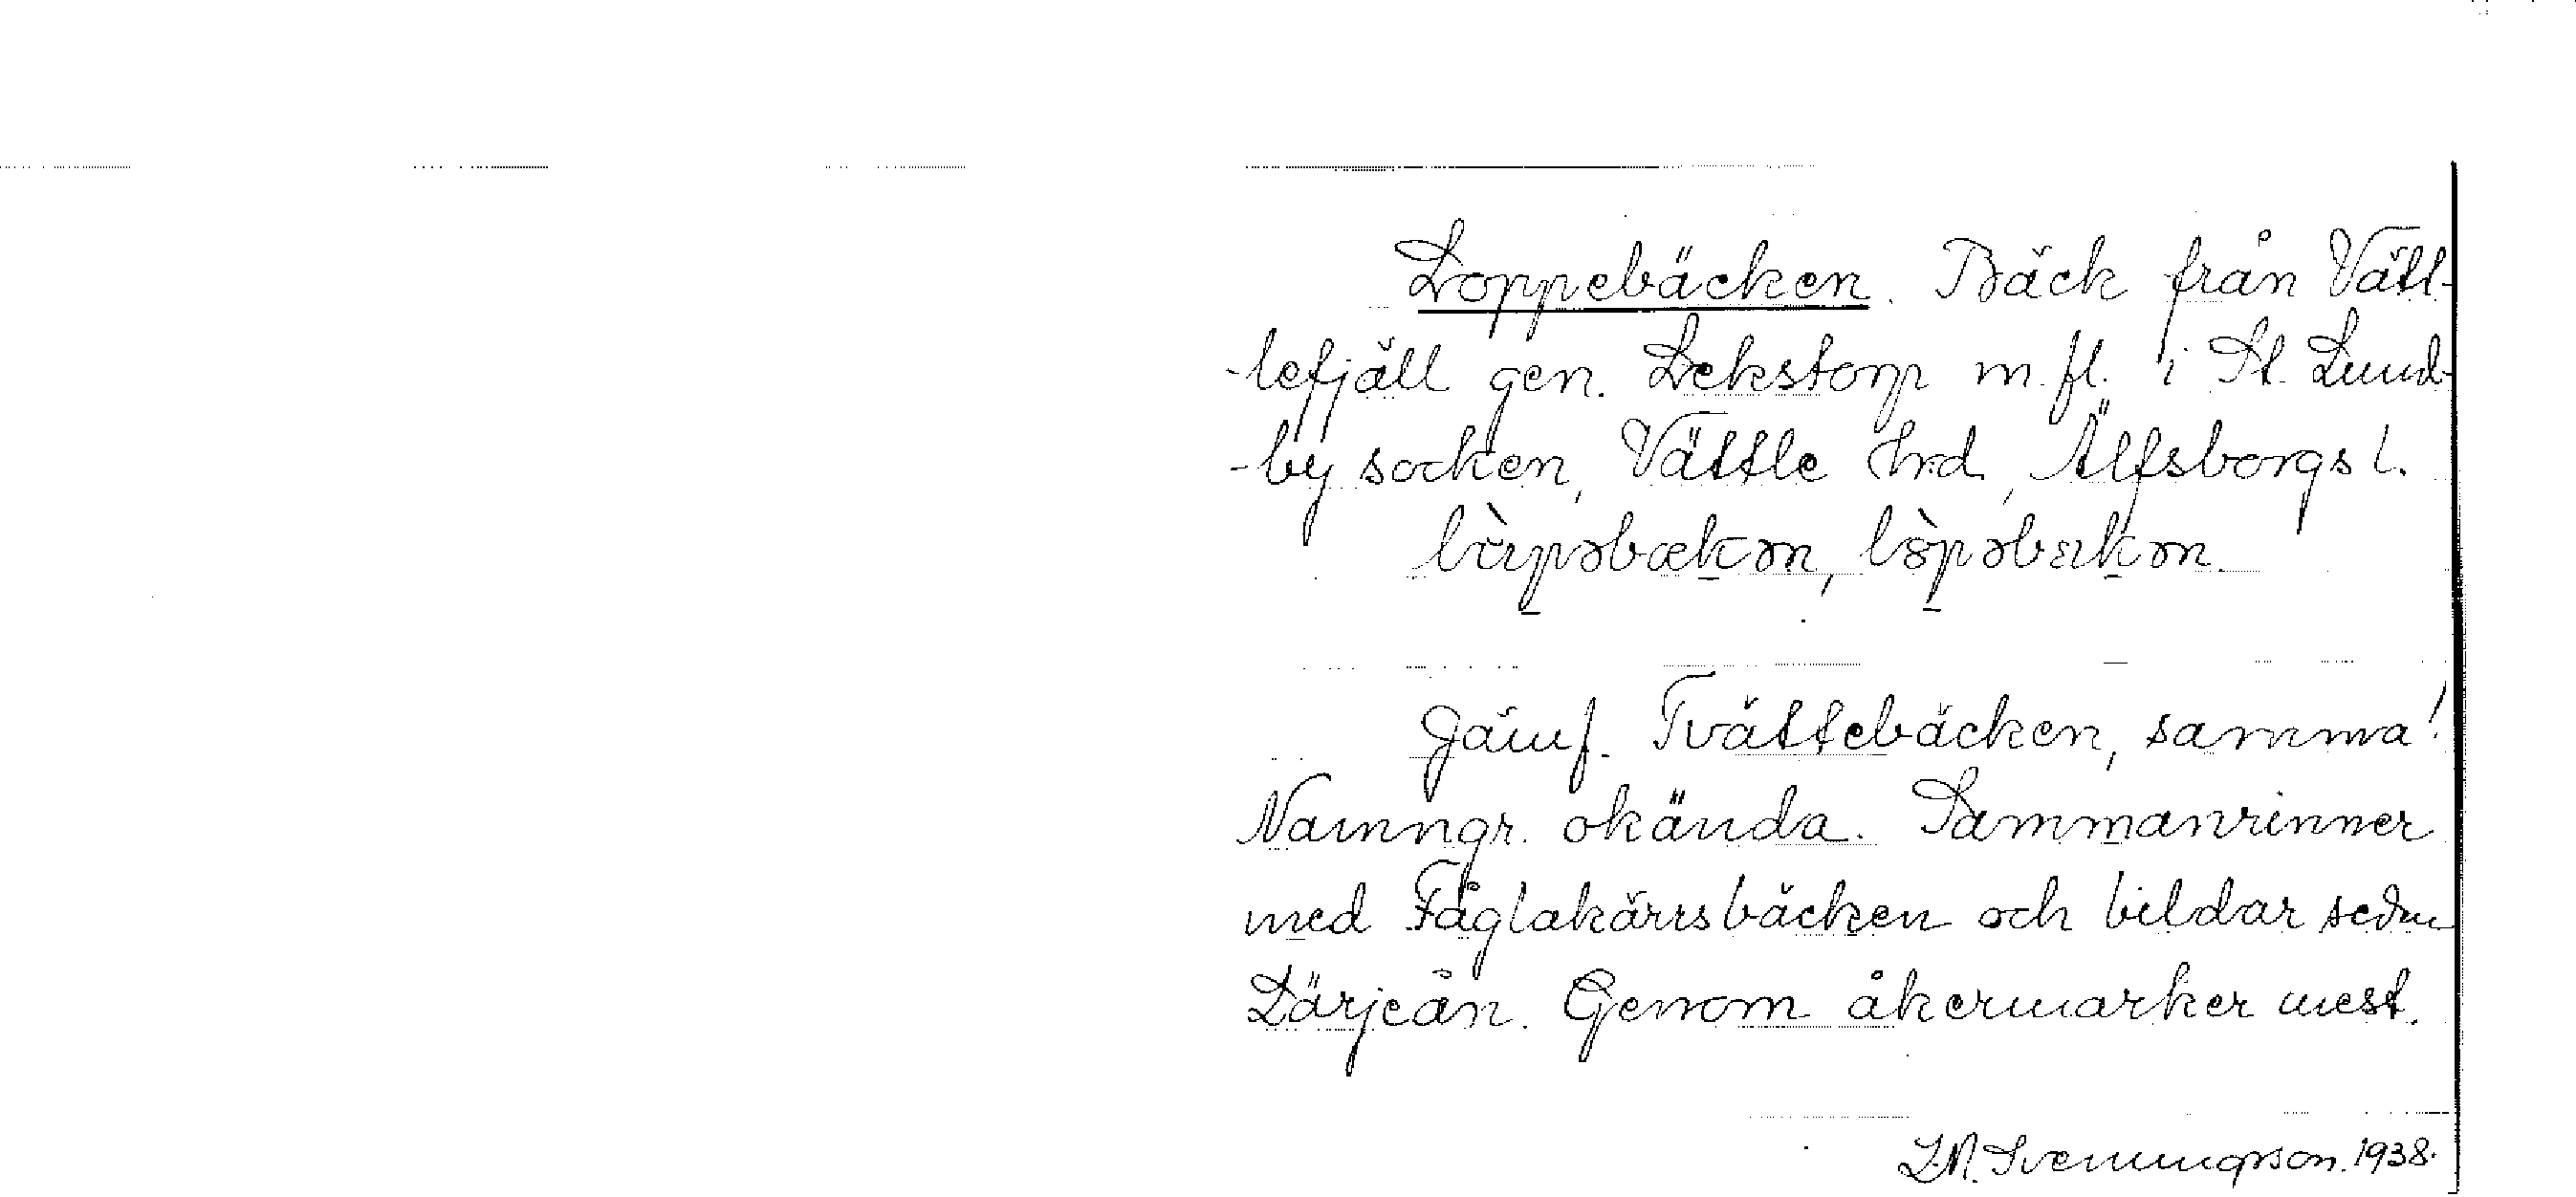 Loppebäcken. Bäck från Vätt-
-lefjäll gen. Lekstorp m. fl. i St. Lund-
-by socken, Vättle hrd, Älfsborgs l.
Jämf. Tvättebäcken, samma!
Namngr. okända. Sammanrinner
med Fåglakärrsbäcken och bildar sedan
Lärjeån. Genom åkermarker mest.
Svenungsson. 1938.